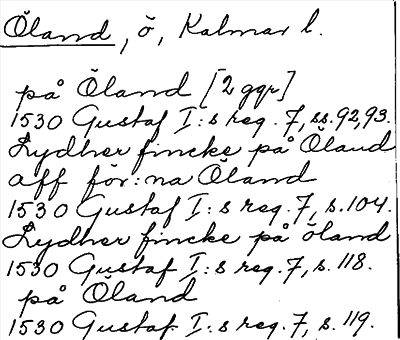 Öland, ö, Kalmar l.
på Öland [2 ggr]
1530 Gustaf I:s reg. 7, ss. 92, 93.
Lydher fincke på Öland
aff för:na Öland
1530 Gustaf I:s reg. 7, s. 104.
Lydher fincke på öland
1530 Gustaf I:s reg. 7, s. 118.
på Öland
1530 Gustaf I:s reg. 7, s. 119.